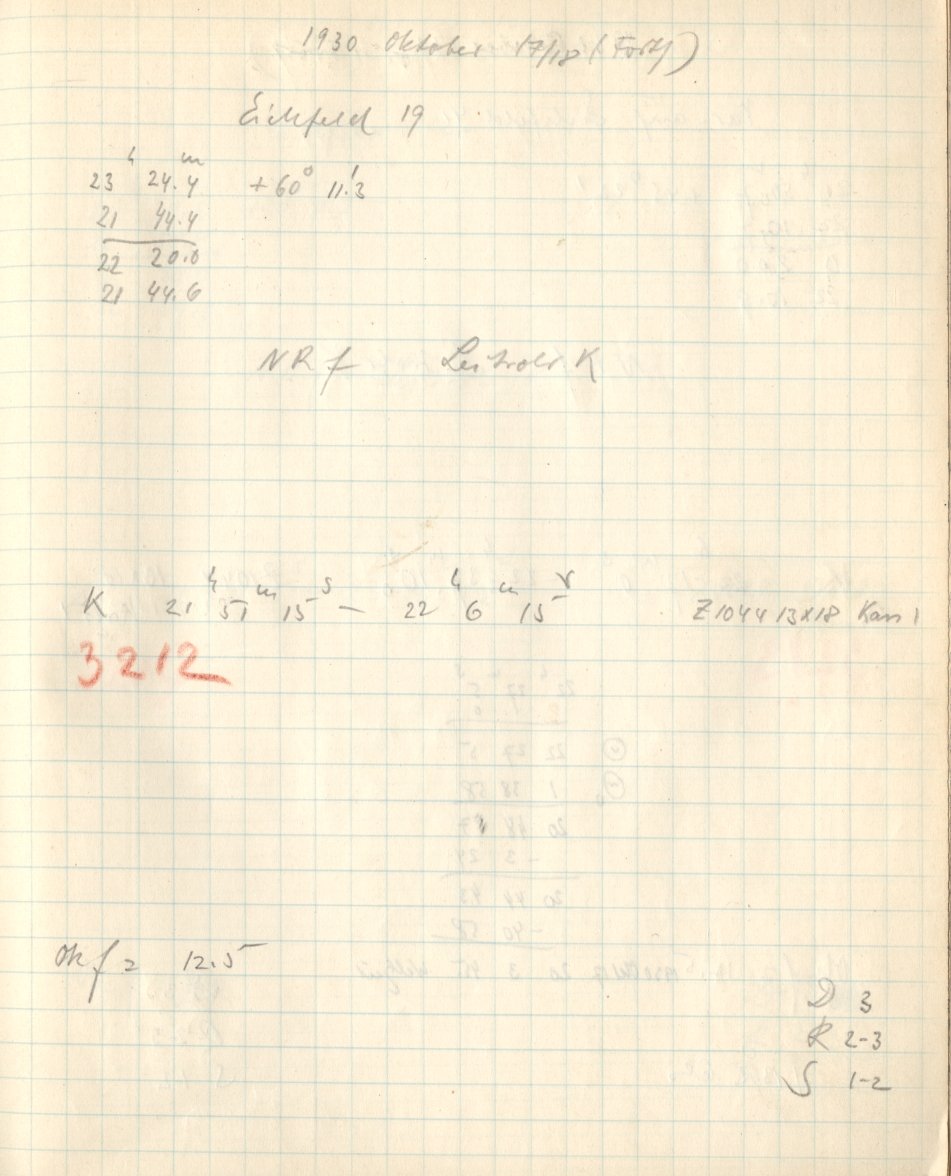 1930 Oktober 17/18 (Forts)
Eichfeld 19
h m
23 24.4 + 60° 11.'3
21 44.4
22 20.0
21 44.6
NR f Leitrohr K
K 21 h 51 m 15 s — 22 h 6 m 15 s Z1044 13x18 Kass 1
3212
Ok f = 12.5
D 3
R 2-3
S 1-2